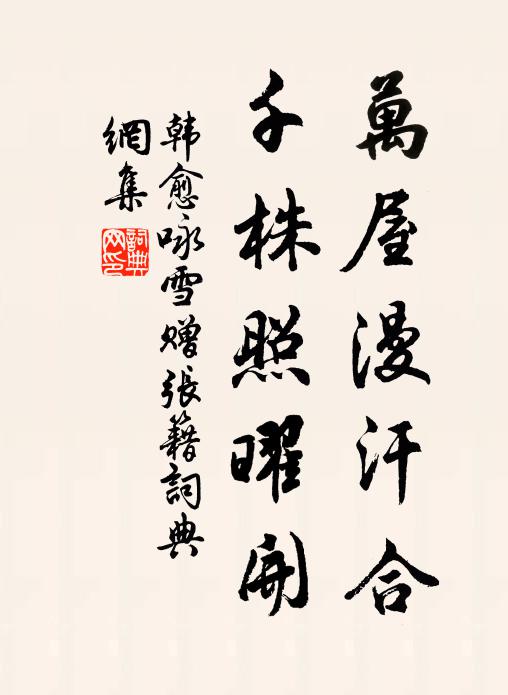 萬屋漫汗合
千株照曜開
韩愈咏雪赠張籍詞典
網集
詞典
网印